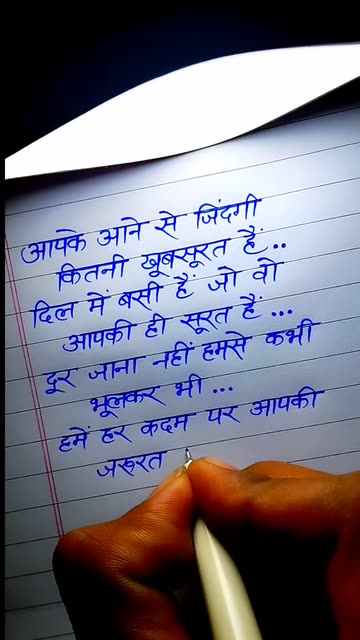 आपके आने से जिंदगी
कितनी खूबसूरत हैं..
दिल में बसी हैं जो वो
आपकी ही सूरत हैं ...
दूर जाना नहीं हमसे कभी
भूलकर भी ...
हमें हर कदम पर आपकी
जरूरत